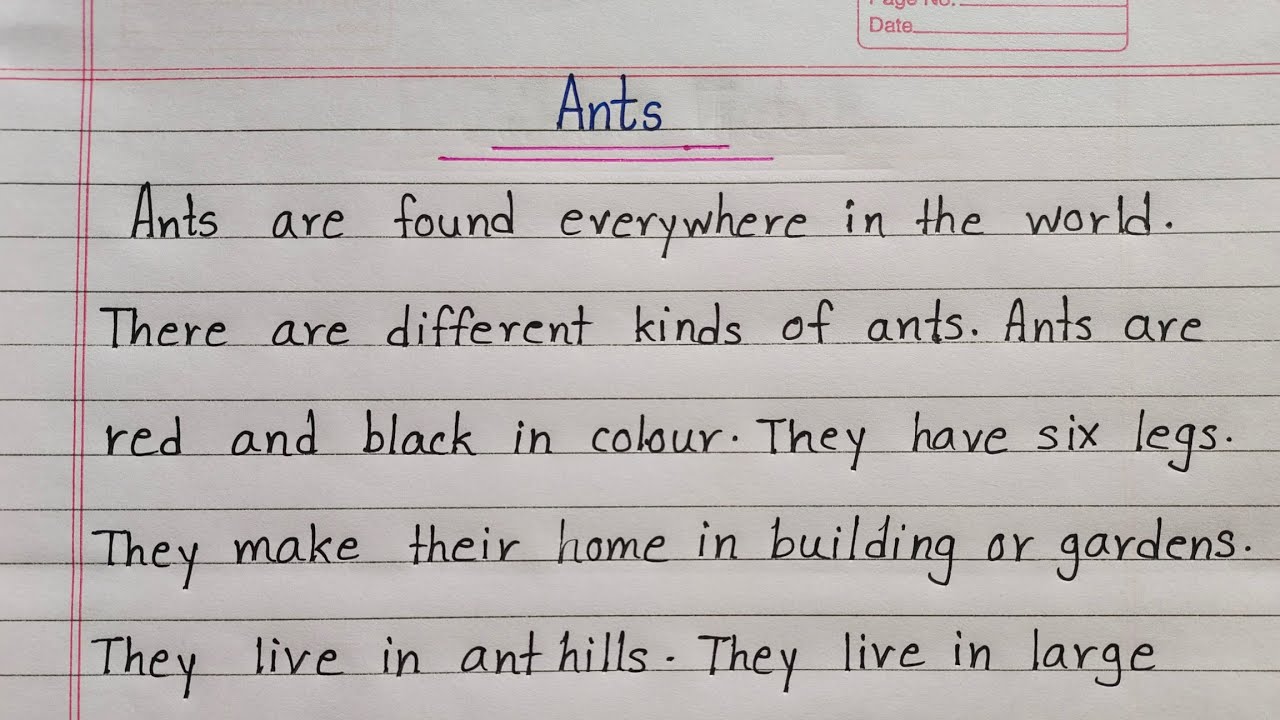 Page No.
Date
Ants
Ants are found everywhere in the world.
There are different kinds of ants. Ants are
red and black in colour. They have six legs.
They make their home in building or gardens.
They live in ant hills. They live in large